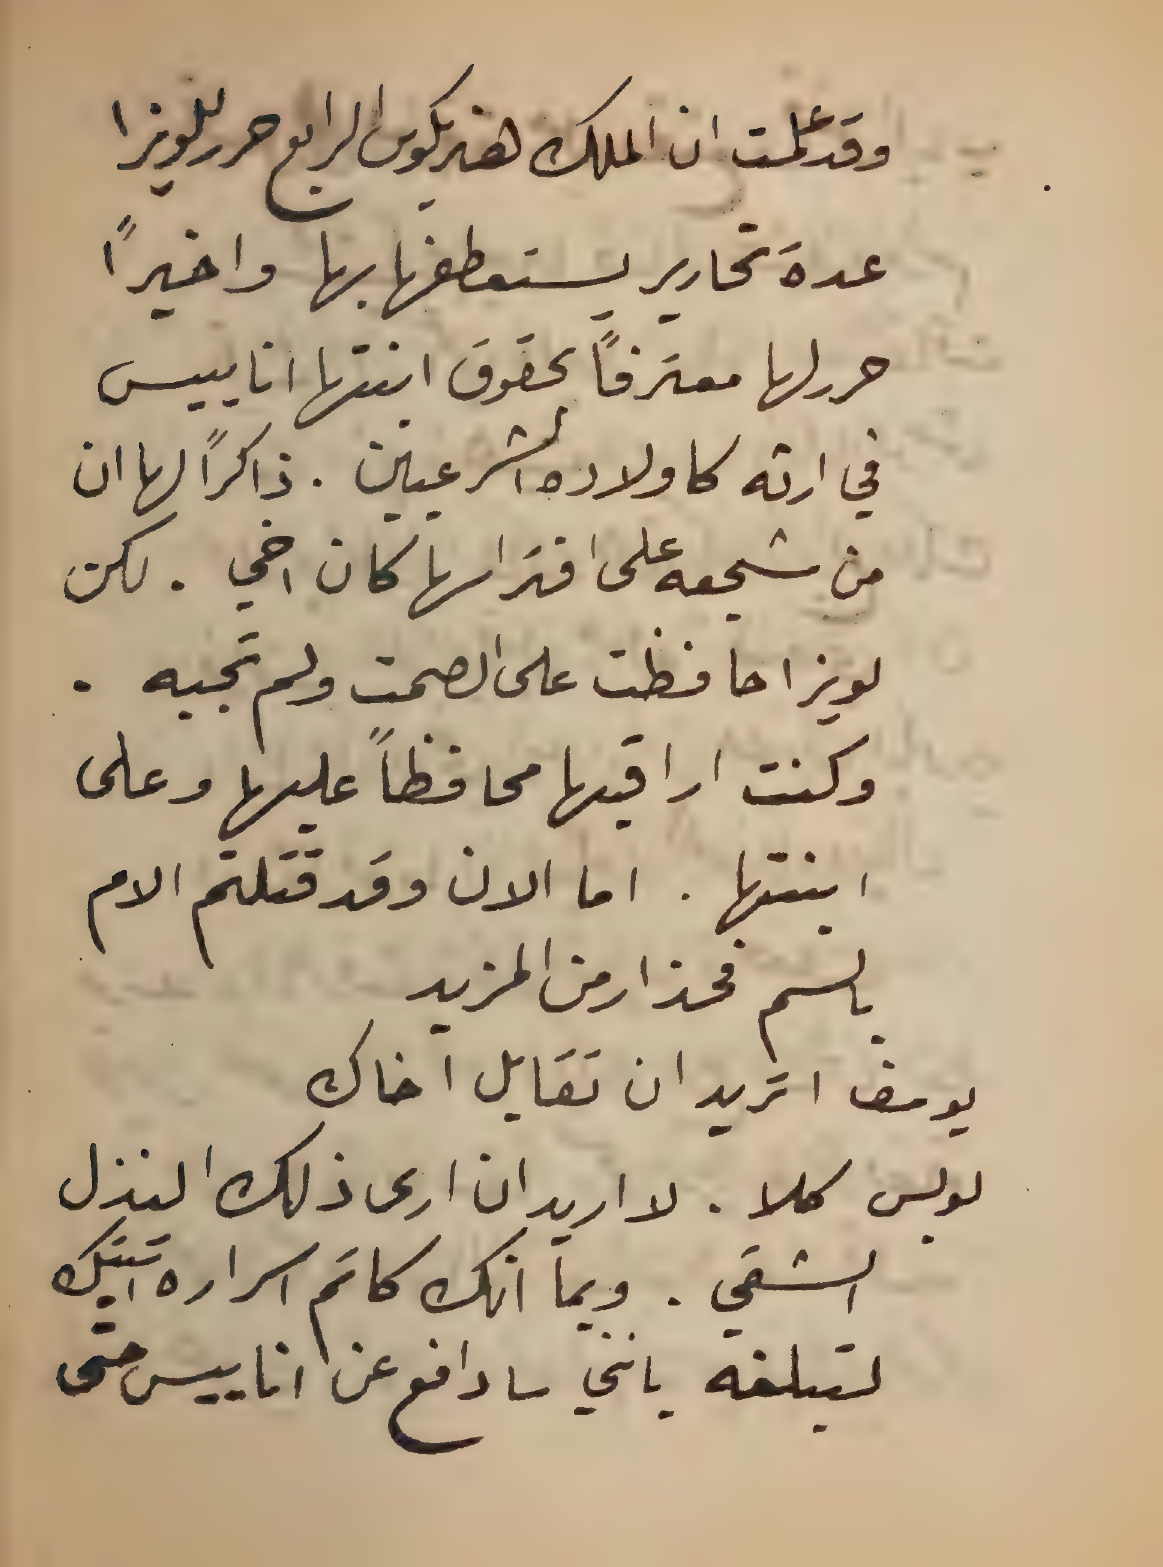 وقد علمت ان الملك هنريكوس الرابع حرر للويزا
عدة تحارير يستعطفها بها واخيراً
حرر لها معترفاً بحقوق ابنتها اناييس
في ارثه كاولاده الشرعيين . ذاكراً لها ان
من شجعه على افتراسها كان اخي . لكن
لويزا حافظت على الصمت ولم تجبه .
وكنت اراقبها محافظاً عليها وعلى
ابنتها . اما الان وقد قتلتم الام
بالسم فحذار من المزيد
يوسف اتريد ان تقابل اخاك
لويس كلا . لا اريد ان ارى ذلك النذل
الشقي . وبما انك كاتم اسراره اتيتك
لتبلغه بانني سادافع عن اناييس حتى